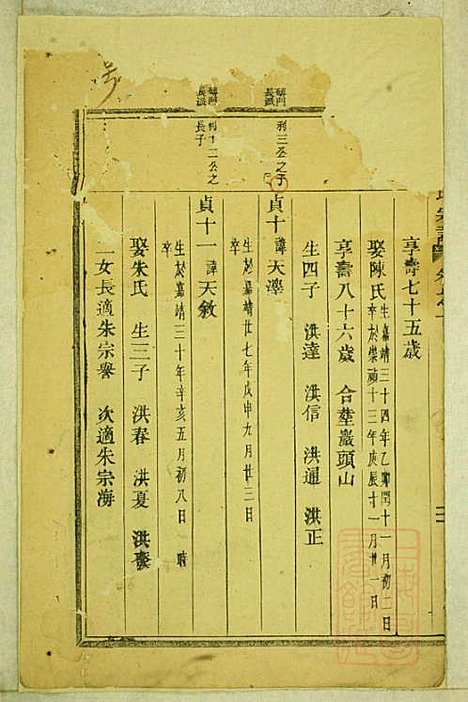 享壽七十五歲
娶陳氏 生嘉靖三十四年乙卯閏十一月初二日
卒於崇禎十三年庚辰十一月廿一日
享壽八十六歲 合塟巖頭山
生四子 洪達 洪信 洪通 洪正
長派
利三公之子
貞十 諱天澤
生於嘉靖廿七年戊申九月廿三日
卒
長派
利十二公之長子
貞十一 諱天敘
生於嘉靖三十年辛亥五月初八日 時
卒
娶朱氏 生三子 洪春 洪夏 洪
二女長適朱宗譽 次適朱宗海